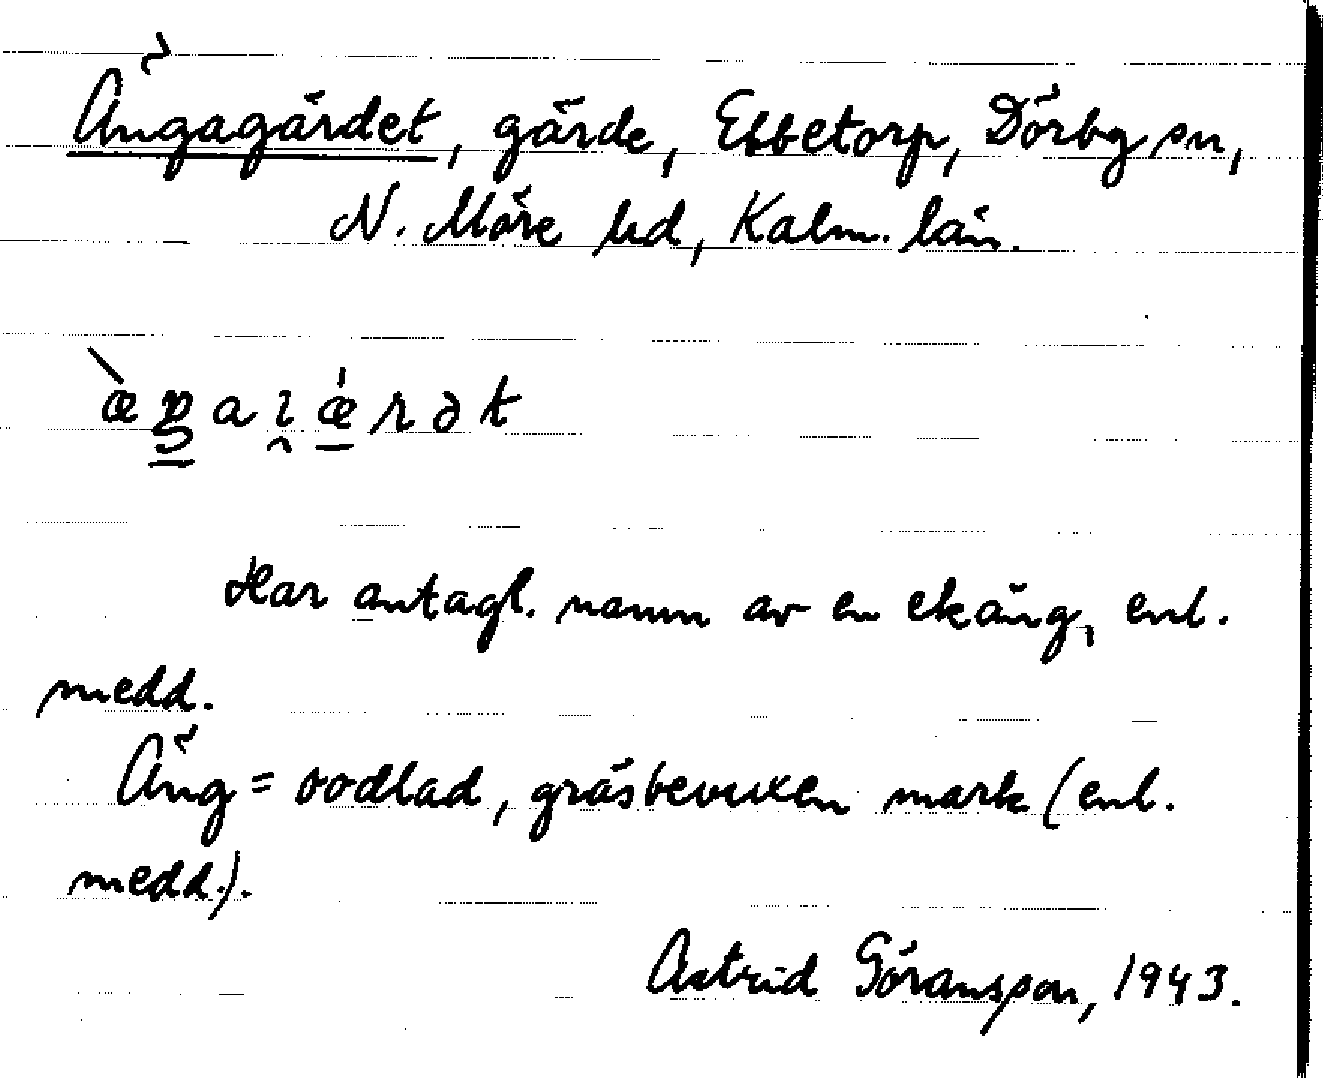 Ängagärdet, gärde, Ebbetorp, Dörby sn,
N. Möre hd, Kalm. län.
Har antagl. namn av en ekäng, enl.
medd.
Äng = oodlad, gräsbevuxen mark (enl.
medd.).
Astrid Göransson, 1943.